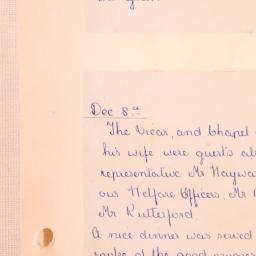 Dec 8th
The Vicar, and Chapel
his wife were guests al
representative Mr Haywa
our Welfare Officers, Mr
Mr Rutterford.
A nice dinner was served
spoke of the good progres